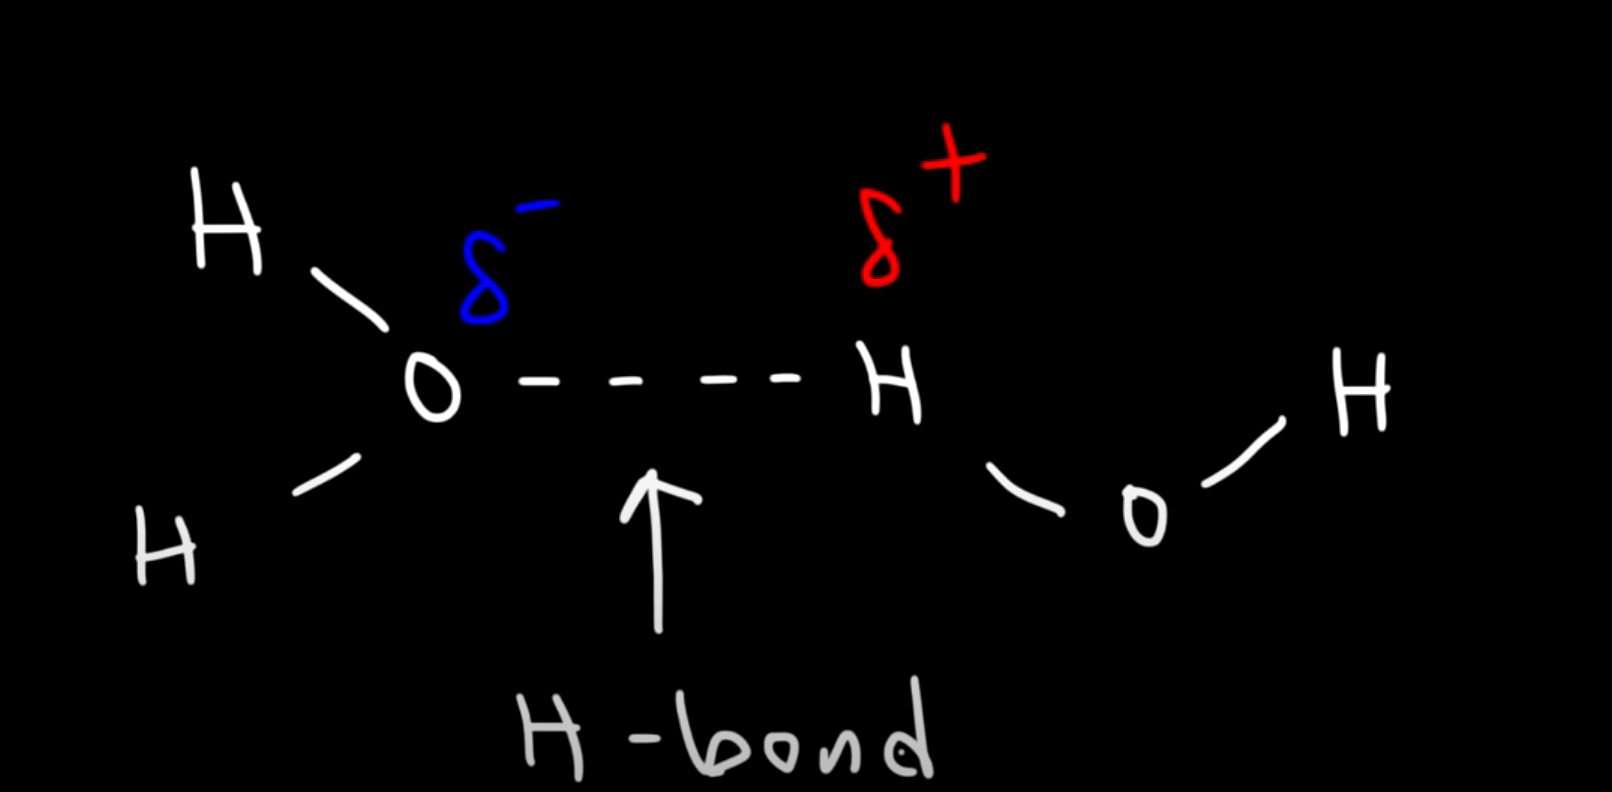 H
δ⁻
δ⁺
O
H
H
H
O
H-bond